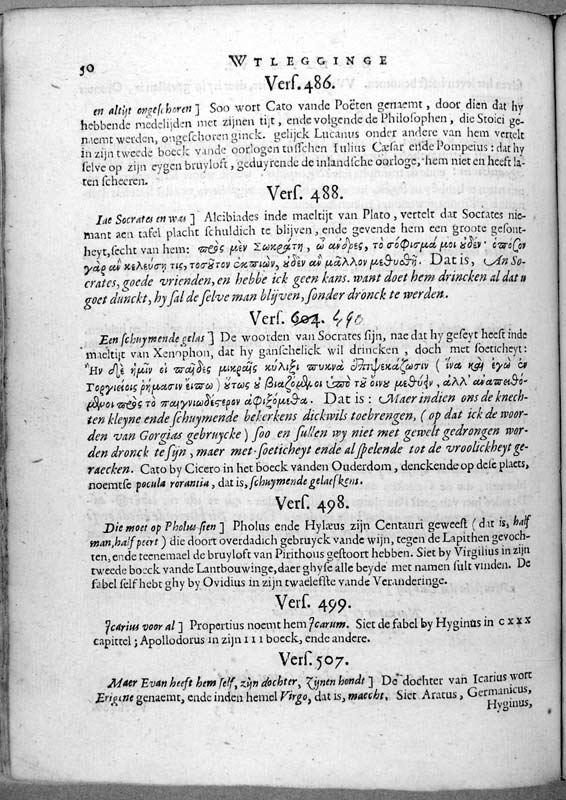 50
WTLEGGINGE
Vers. 486.
en altijt ongeschoren] Soo wort Cato vande Poëten genaemt, door dien dat hy
hebbende medelijden met zijnen tijt, ende volgende de Philosophen, die Stoici ge-
naemt werden, ongeschoren ginck. gelijck Lucanus onder andere van hem vertelt
in zijn tweede boeck vande oorlogen tusschen Iulius Cæsar ende Pompeius: dat hy
selve op zijn eygen bruyloft, geduyrende de inlandsche oorloge, hem niet en heeft la-
ten scheeren.
Vers. 488.
Iae Socrates en was] Alcibiades inde maeltijt van Plato, vertelt dat Socrates nie-
mant aen tafel placht schuldich te blijven, ende gevende hem een groote gesont-
heyt, secht van hem: πρὸς μὲν Σωκράτη, ὦ ἄνδρες, τὸ σόφισμά μοι οὐδέν· ὁπόσον
γὰρ ἂν κελεύση τις, τοσοῦτον ἐκπιὼν, οὐδὲν ἂν μᾶλλον μεθυσθῇ. Dat is, An So-
crates, goede vrienden, en hebbe ick geen kans. want doet hem drincken al dat u
goet dunckt, hy sal de selve man blijven, sonder dronck te werden.
Vers. 604. 490
Een schuymende gelas] De woorden van Socrates sijn, nae dat hy geseyt heeft inde
maeltijt van Xenophon, dat hy ganschelick wil drincken, doch met soeticheyt:
Ἢν δὲ ἡμῖν οἱ παῖδες μικραῖς κύλιξι πυκνὰ ἐπιψεκάζωσιν (ἵνα καὶ ἐγὼ ἐν
Γοργιείοις ῥήμασιν εἴπω) οὕτως οὐ βιαζόμενοι ὑπὸ τοῦ οἴνου μεθύειν, ἀλλ' ἀναπειθό-
μενοι πρὸς τὸ παιγνιωδέστερον ἀφιξόμεθα. Dat is: Maer indien ons de knech-
ten kleyne ende schuymende bekerkens dickwils toebrengen, (op dat ick de woor-
den van Gorgias gebruycke) soo en sullen wy niet met gewelt gedrongen wor-
den dronck te sijn, maer met soeticheyt ende al spelende tot de vroolickheyt ge-
raecken. Cato by Cicero in het boeck vanden Ouderdom, denckende op dese plaets,
noemtse pocula rorantia, dat is, schuymende gelaeskens.
Vers. 498.
Die moet op Pholus sien] Pholus ende Hylæus zijn Centauri geweest (dat is, half
man, half peert) die doort overdadich gebruyck vande wijn, tegen de Lapithen gevoch-
ten, ende teenemael de bruyloft van Pirithous gestoort hebben. Siet by Virgilius in zijn
tweede boeck vande Lantbouwinge, daer ghyse alle beyde met namen sult vinden. De
fabel self hebt ghy by Ovidius in zijn twaelefste vande Veranderinge.
Vers. 499.
Icarius voor al] Propertius noemt hem Icarum. Siet de fabel by Hyginus in CXXX
capittel; Apollodorus in zijn III boeck, ende andere.
Vers. 507.
Maer Evan heeft hem self, zijn dochter, zijnen hondt] De dochter van Icarius wort
Erigine genaemt, ende inden hemel Virgo, dat is, maecht. Siet Aratus, Germanicus,
Hyginus,